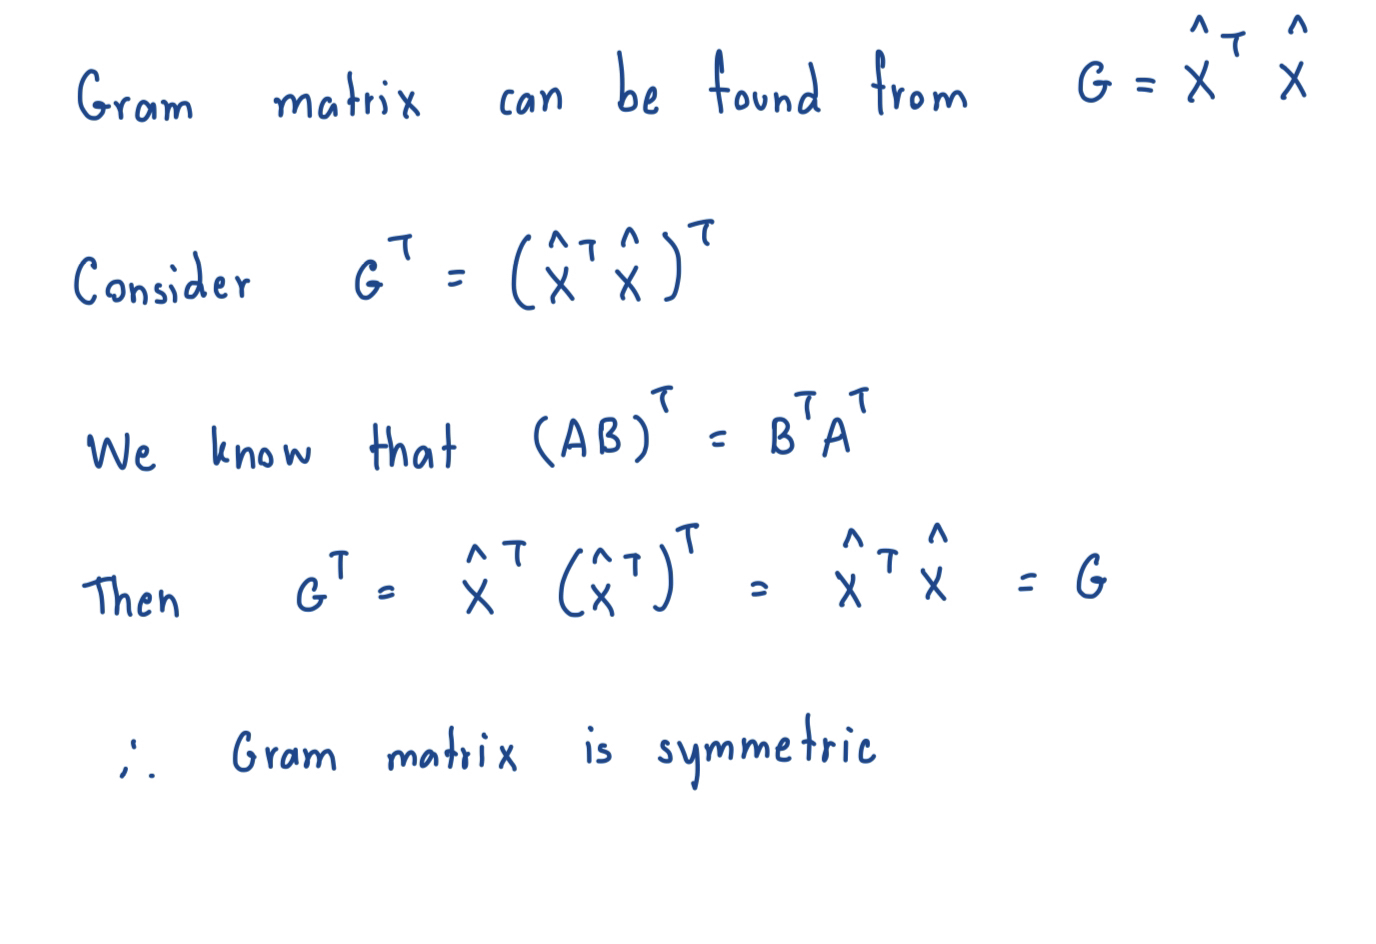 Gram matrix can be found from G = X̂ᵀ X̂
Consider Gᵀ = (X̂ᵀ X̂)ᵀ
We know that (AB)ᵀ = BᵀAᵀ
Then Gᵀ = X̂ᵀ (X̂ᵀ)ᵀ = X̂ᵀ X̂ = G
∴ Gram matrix is symmetric